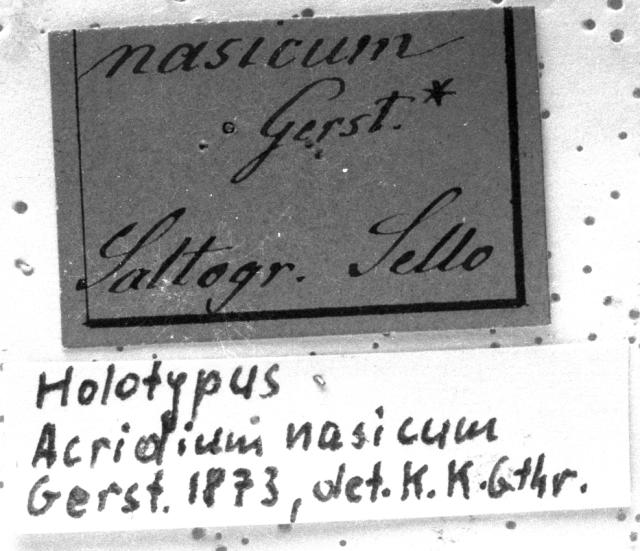 nasicum
Gerst.*
Saltogr. Sello
Holotypus
Acridium nasicum
Gerst. 1873, det. K. K. Gthr.